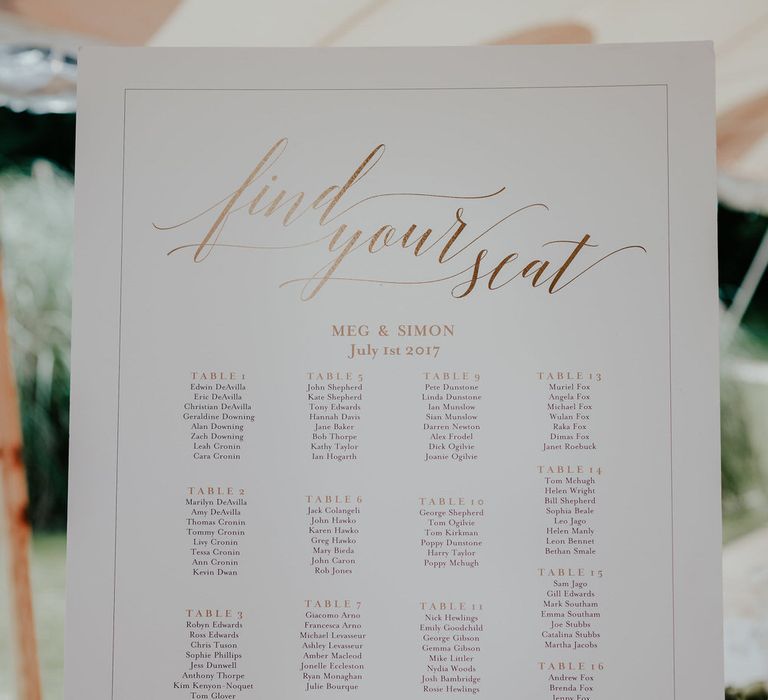 find
your
seat
MEG & SIMON
July 1st 2017
TABLE 1
Edwin DeAvilla
Eric DeAvilla
Christian DeAvilla
Geraldine Downing
Alan Downing
Zach Downing
Leah Cronin
Cara Cronin
TABLE 2
Marilyn DeAvilla
Amy DeAvilla
Thomas Cronin
Tommy Cronin
Livy Cronin
Tessa Cronin
Ann Cronin
Kevin Dwan
TABLE 3
Robyn Edwards
Ross Edwards
Chris Tuson
Sophie Phillips
Jess Dunwell
Anthony Thorpe
Kim Kenyon-Noquet
Tom Glover
TABLE 5
John Shepherd
Kate Shepherd
Tony Edwards
Hannah Davis
Jane Baker
Bob Thorpe
Kathy Taylor
Ian Hogarth
TABLE 6
Jack Colangeli
John Hawko
Karen Hawko
Greg Hawko
Mary Bieda
John Caron
Rob Jones
TABLE 7
Giacomo Arno
Francesca Arno
Michael Levasseur
Ashley Levasseur
Amber Macleod
Jonelle Eccleston
Ryan Monaghan
Julie Bourque
TABLE 9
Pete Dunstone
Linda Dunstone
Ian Munslow
Sian Munslow
Darren Newton
Alex Frodel
Dick Ogilvie
Joanie Ogilvie
TABLE 10
George Shepherd
Tom Ogilvie
Tom Kirkman
Poppy Dunstone
Harry Taylor
Poppy Mchugh
TABLE 11
Nick Hewlings
Emily Goodchild
George Gibson
Gemma Gibson
Mike Littler
Nydia Woods
Josh Bambridge
Rosie Hewlings
TABLE 13
Muriel Fox
Angela Fox
Michael Fox
Wulan Fox
Raka Fox
Dimas Fox
Janet Roebuck
TABLE 14
Tom Mchugh
Helen Wright
Bill Shepherd
Sophia Beale
Leo Jago
Helen Manly
Leon Bennet
Bethan Smale
TABLE 15
Sam Jago
Gill Edwards
Mark Southam
Emma Southam
Joe Stubbs
Catalina Stubbs
Martha Jacobs
TABLE 16
Andrew Fox
Brenda Fox
Jenny Fox